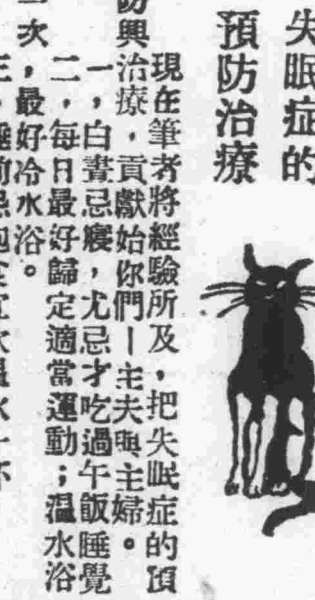 失眠症的
預防治療
現在筆者將經驗所及，把失眠症的預
防與治療，貢獻始你們—主夫與主婦。
一，白晝忌寢，尤忌才吃過午飯睡覺
二，每日最好歸定適當運動；溫水浴
次，最好冷水浴。